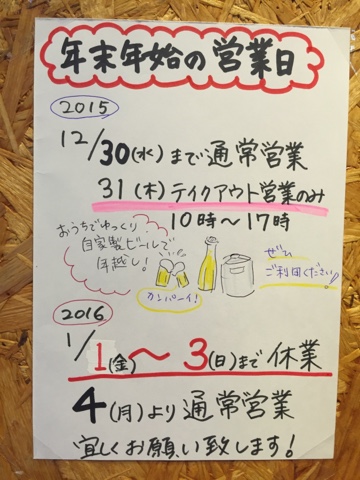 年末年始の営業日
2015
12/30(水)まで通常営業
31(木)テイクアウト営業のみ
10時〜17時
おうちでゆっくり
自家製ビールで
年越し!
カンパーイ!
ぜひ
ご利用ください!
2016
1/1(金)〜3(日)まで休業
4(月)より通常営業
宜しくお願い致します!